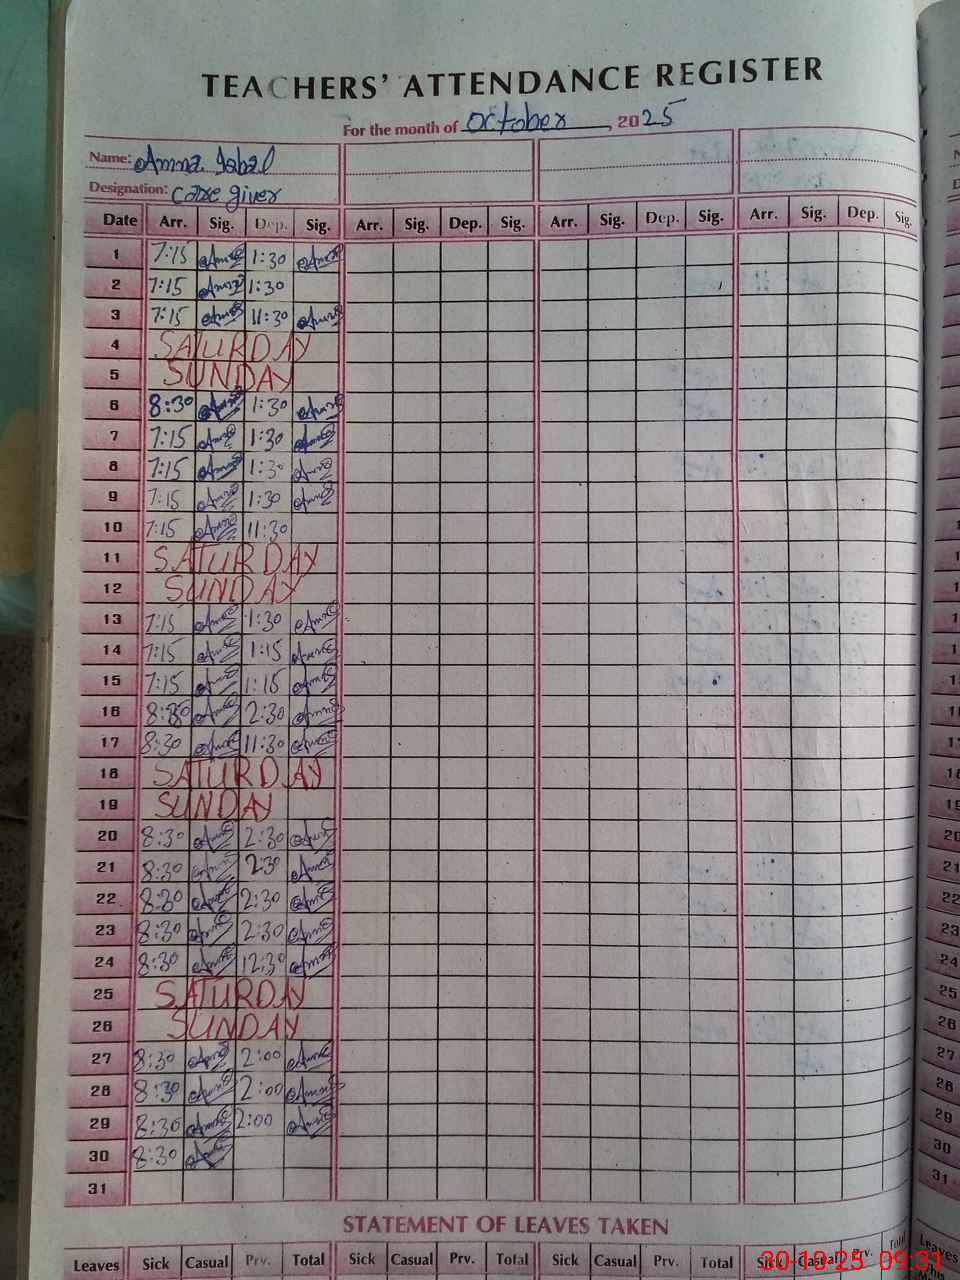 TEACHERS' ATTENDANCE REGISTER
For the month of October, 2025
Name: Amna Iqbal
Designation: Care giver
Date Arr. Sig. Dep. Sig. Arr. Sig. Dep. Sig. Arr. Sig. Dep. Sig. Arr. Sig. Dep. Sig.
1 7:15 Amna 1:30 Amna
2 7:15 Amna 1:30
3 7:15 Amna 11:30 Amna
4 SATURDAY
5 SUNDAY
6 8:30 Amna 1:30 Amna
7 7:15 Amna 1:30 Amna
8 7:15 Amna 1:30 Amna
9 7:15 Amna 1:30 Amna
10 7:15 Amna 11:30
11 SATURDAY
12 SUNDAY
13 7:15 Amna 1:30 Amna
14 7:15 Amna 1:15 Amna
15 7:15 Amna 1:15 Amna
16 8:30 Amna 2:30 Amna
17 8:30 Amna 11:30 Amna
18 SATURDAY
19 SUNDAY
20 8:30 Amna 2:30 Amna
21 8:30 Amna 2:30 Amna
22 8:30 Amna 2:30 Amna
23 8:30 Amna 2:30 Amna
24 8:30 Amna 12:30 Amna
25 SATURDAY
26 SUNDAY
27 8:30 Amna 2:00 Amna
28 8:30 Amna 2:00 Amna
29 8:30 Amna 2:00 Amna
30 8:30 Amna
31
STATEMENT OF LEAVES TAKEN
Leaves Sick Casual Prv. Total Sick Casual Prv. Total Sick Casual Prv. Total Sick Casual Prv. Total
30-10-25 09:31